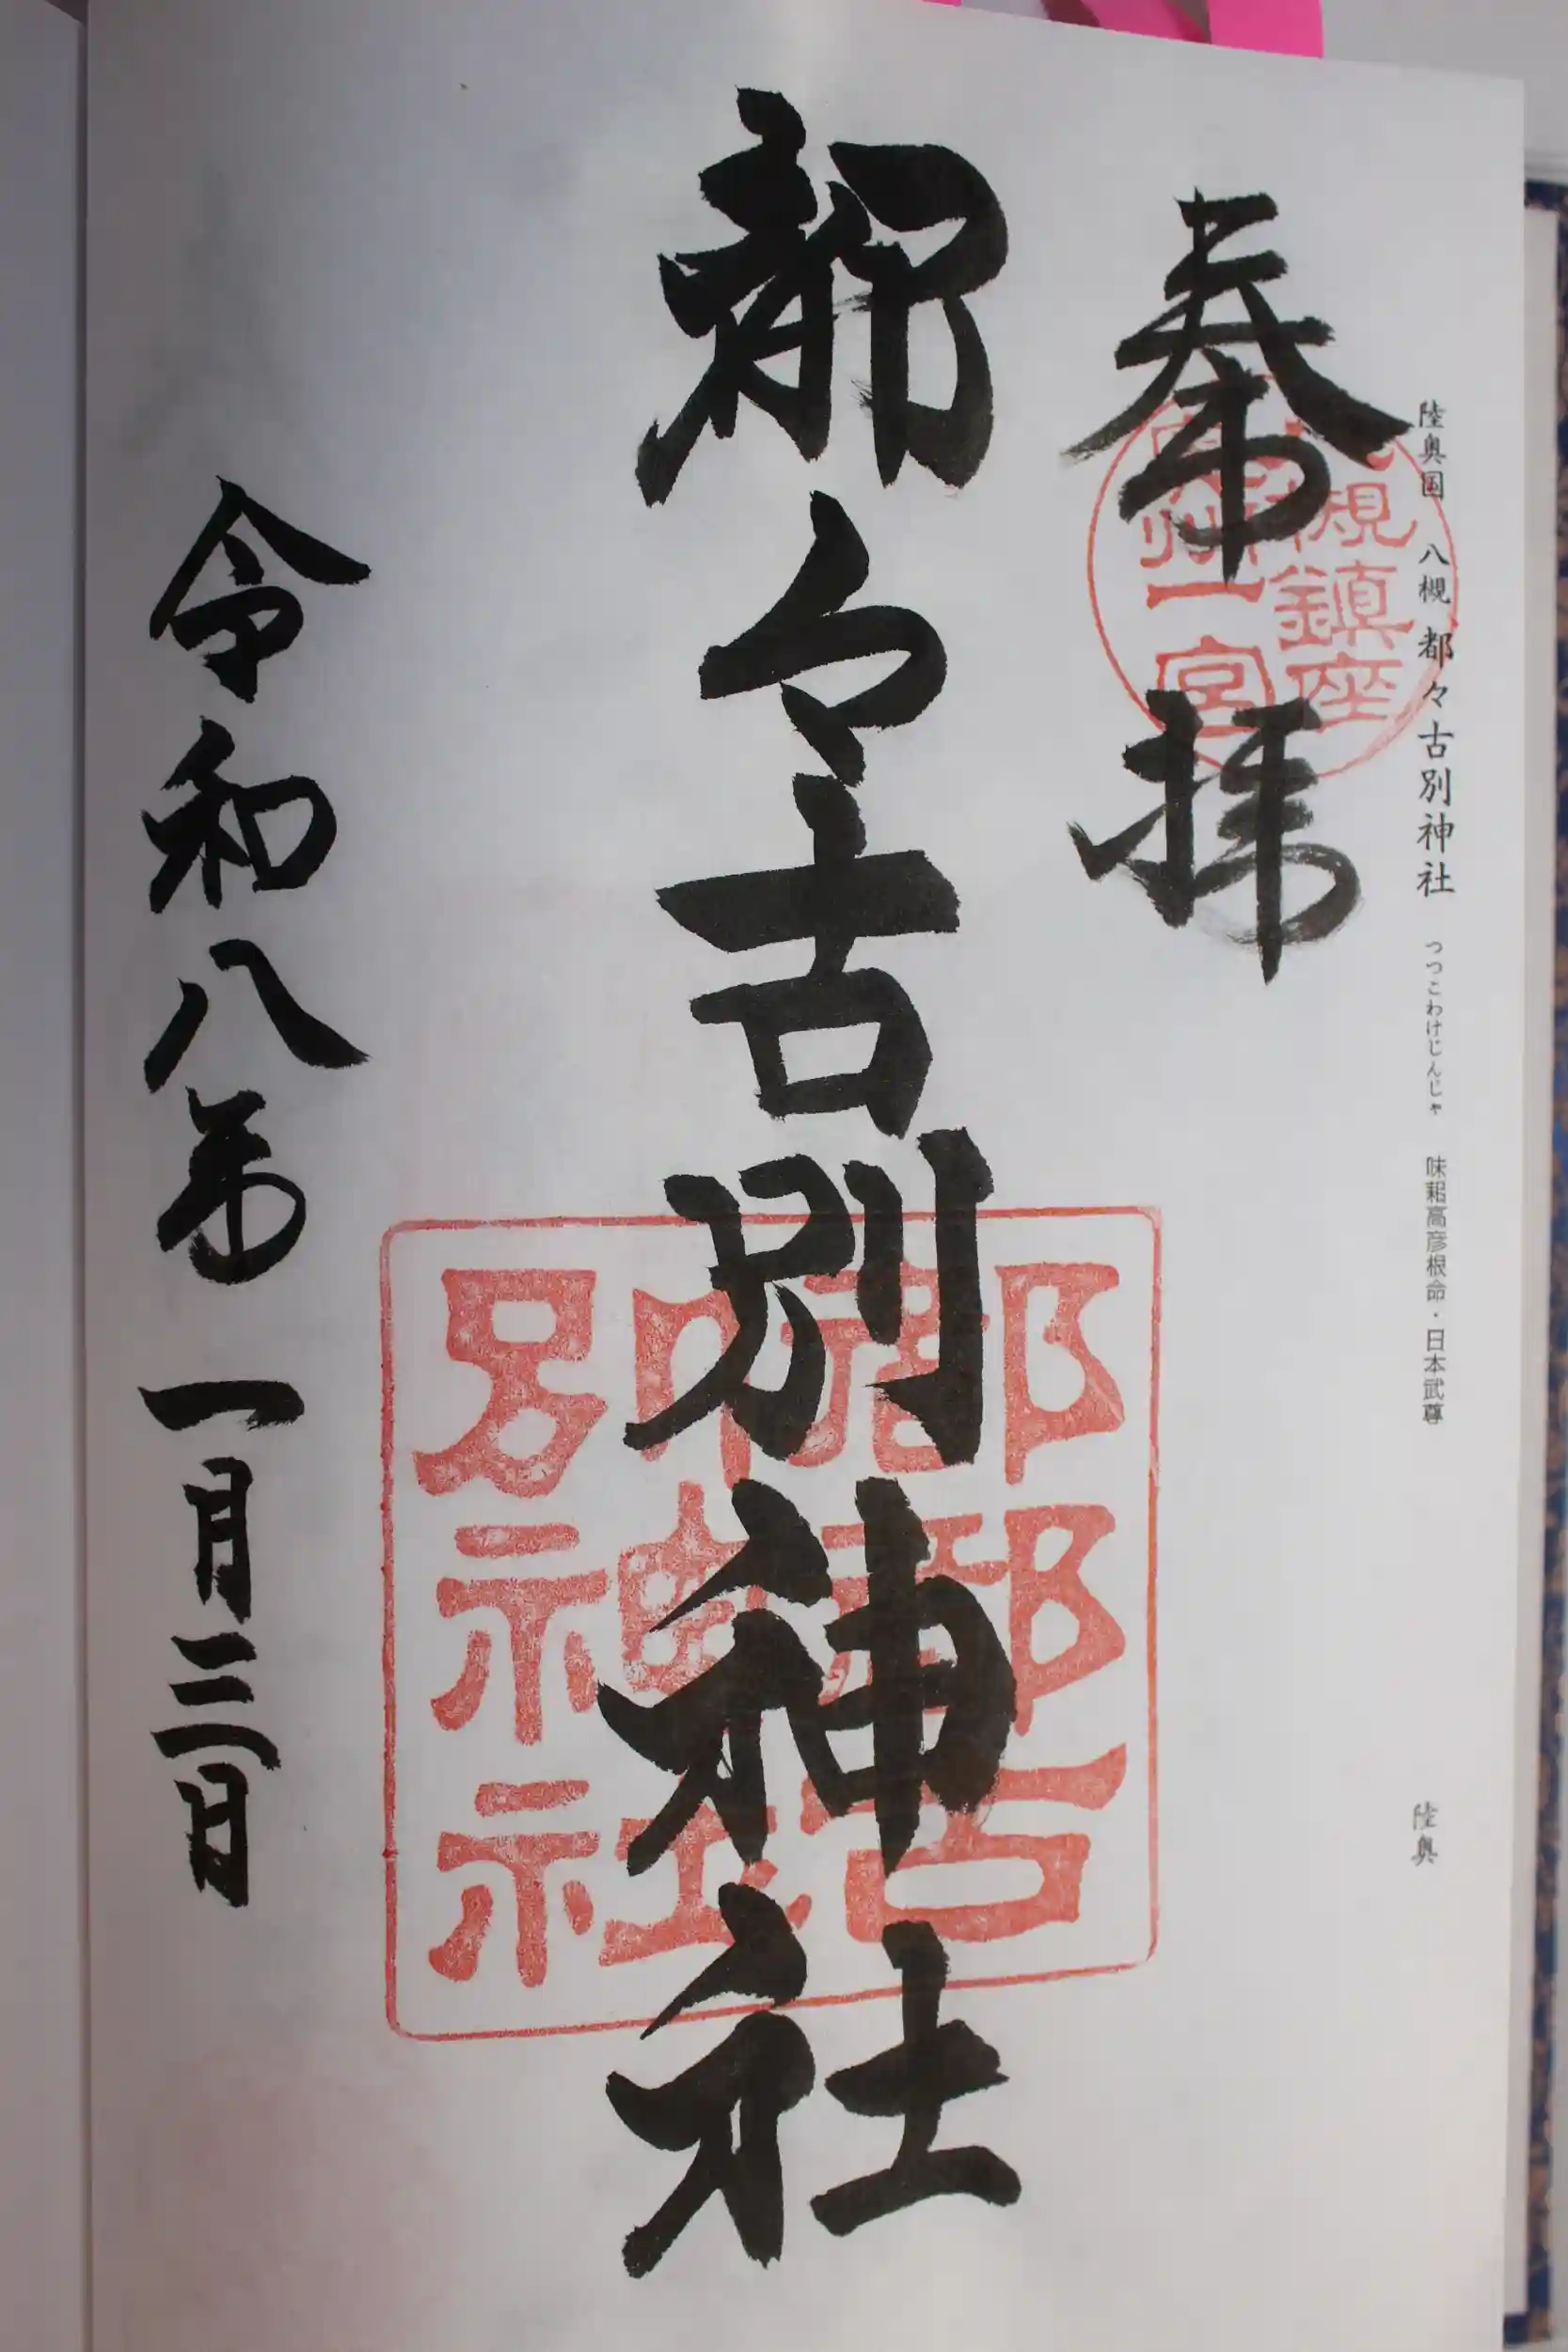 陸奥国 八槻 都々古別神社 つつこわけじんじゃ 味耜高彦根命・日本武尊 陸奥
奉拝
八槻鎮座
奥州一宮
都々古別神社
都都古
別神社
令和八年一月三日